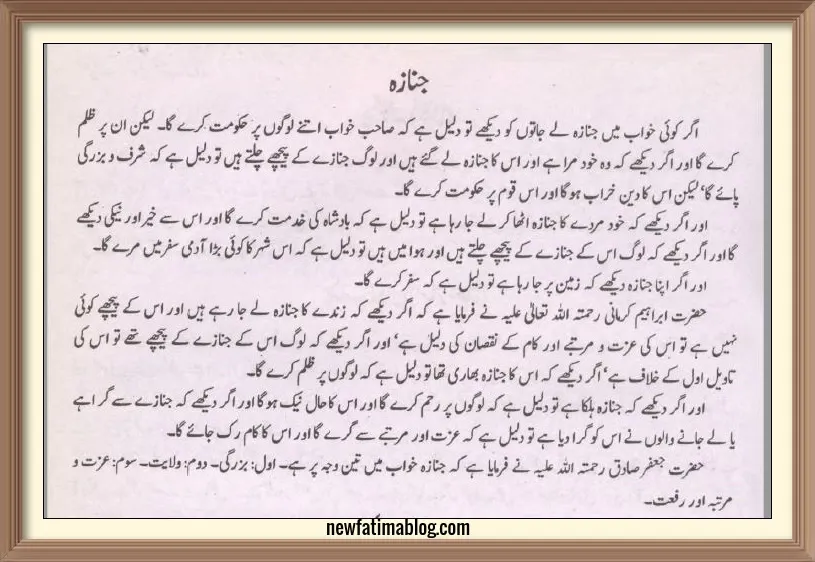 جنازہ
اگر کوئی خواب میں جنازہ لے جاتوں کو دیکھے تو دلیل ہے کہ صاحب خواب اتنے لوگوں پر حکومت کرے گا۔ لیکن ان پر ظلم
کرے گا اور اگر دیکھے کہ وہ خود مرا ہے اور اس کا جنازہ لے گئے ہیں اور لوگ جنازے کے پیچھے چلتے ہیں تو دلیل ہے کہ شرف و بزرگی
پائے گا، لیکن اس کا دین خراب ہوگا اور اس قوم پر حکومت کرے گا۔
اور اگر دیکھے کہ خود مردے کا جنازہ اٹھا کر لے جا رہا ہے تو دلیل ہے کہ بادشاہ کی خدمت کرے گا اور اس سے خیر اور نیکی دیکھے
گا اور اگر دیکھے کہ لوگ اس کے جنازے کے پیچھے چلتے ہیں اور ہوا میں ہیں تو دلیل ہے کہ اس شہر کا کوئی بڑا آدمی سفر میں مرے گا۔
اور اگر اپنا جنازہ دیکھے کہ زمین پر جا رہا ہے تو دلیل ہے کہ سفر کرے گا۔
حضرت ابراہیم کرمانی رحمتہ اللہ تعالٰی علیہ نے فرمایا ہے کہ اگر دیکھے کہ زندے کا جنازہ لے جا رہے ہیں اور اس کے پیچھے کوئی
نہیں ہے تو اس کی عزت و مرتبے اور کام کے نقصان کی دلیل ہے، اور اگر دیکھے کہ لوگ اس کے جنازے کے پیچھے تھے تو اس کی
تاویل اول کے خلاف ہے، اگر دیکھے کہ اس کا جنازہ بھاری تھا تو دلیل ہے کہ لوگوں پر ظلم کرے گا۔
اور اگر دیکھے کہ جنازہ ہلکا ہے تو دلیل ہے کہ لوگوں پر رحم کرے گا اور اس کا حال نیک ہوگا اور اگر دیکھے کہ جنازے سے گرا ہے
یا لے جانے والوں نے اس کو گرا دیا ہے تو دلیل ہے کہ عزت اور مرتبے سے گرے گا اور اس کا کام رک جائے گا۔
حضرت جعفر صادق رحمتہ اللہ علیہ نے فرمایا ہے کہ جنازہ خواب میں تین وجہ پر ہے۔ اول: بزرگی۔ دوم: ولایت۔ سوم: عزت و
مرتبہ اور رفعت۔
newfatimablog.com